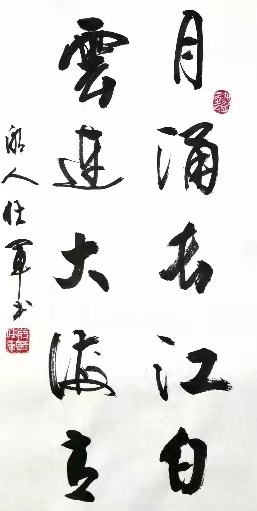 月涌长江白
雲連大海青
人任軍书